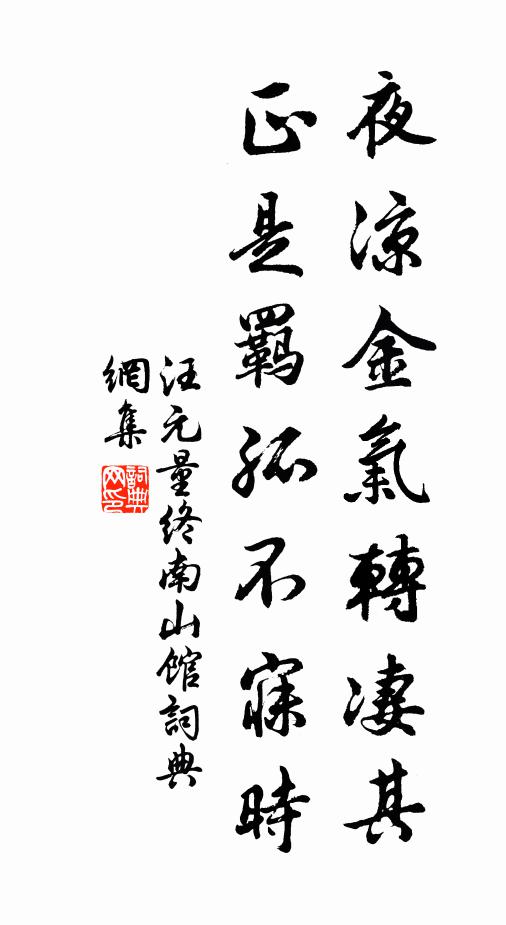 夜涼金氣轉凄其
正是羈孤不寐時
汪元量終南山館詞典
網集
詞典
网印